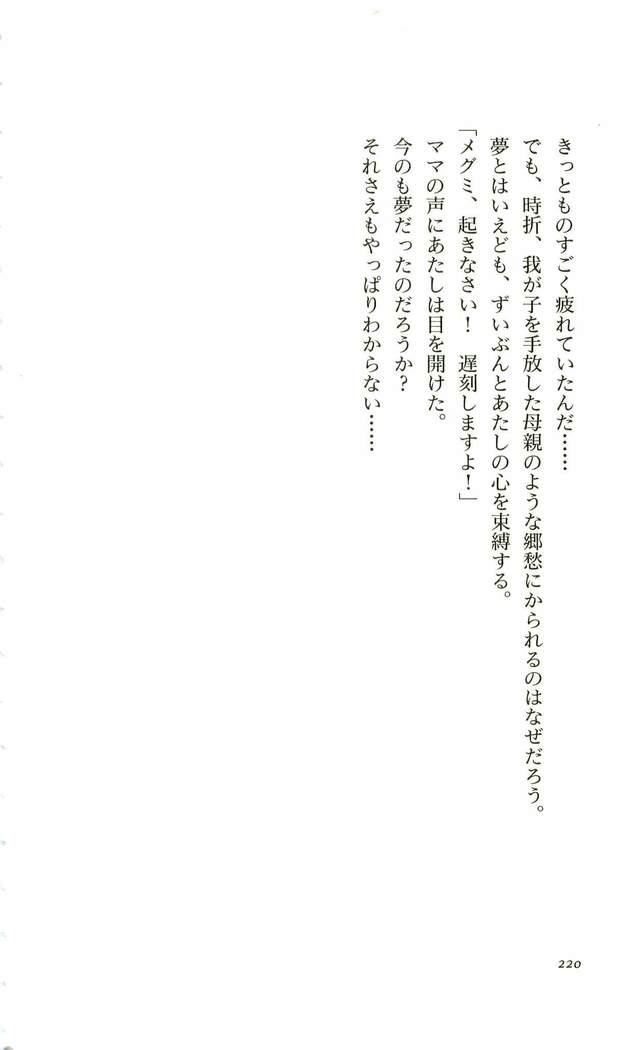 きっとものすごく疲れていたんだ……
でも、時折、我が子を手放した母親のような郷愁にかられるのはなぜだろう。
夢とはいえども、ずいぶんとあたしの心を束縛する。
「メグミ、起きなさい！　遅刻しますよ！」
ママの声にあたしは目を開けた。
今のも夢だったのだろうか？
それさえもやっぱりわからない……
220